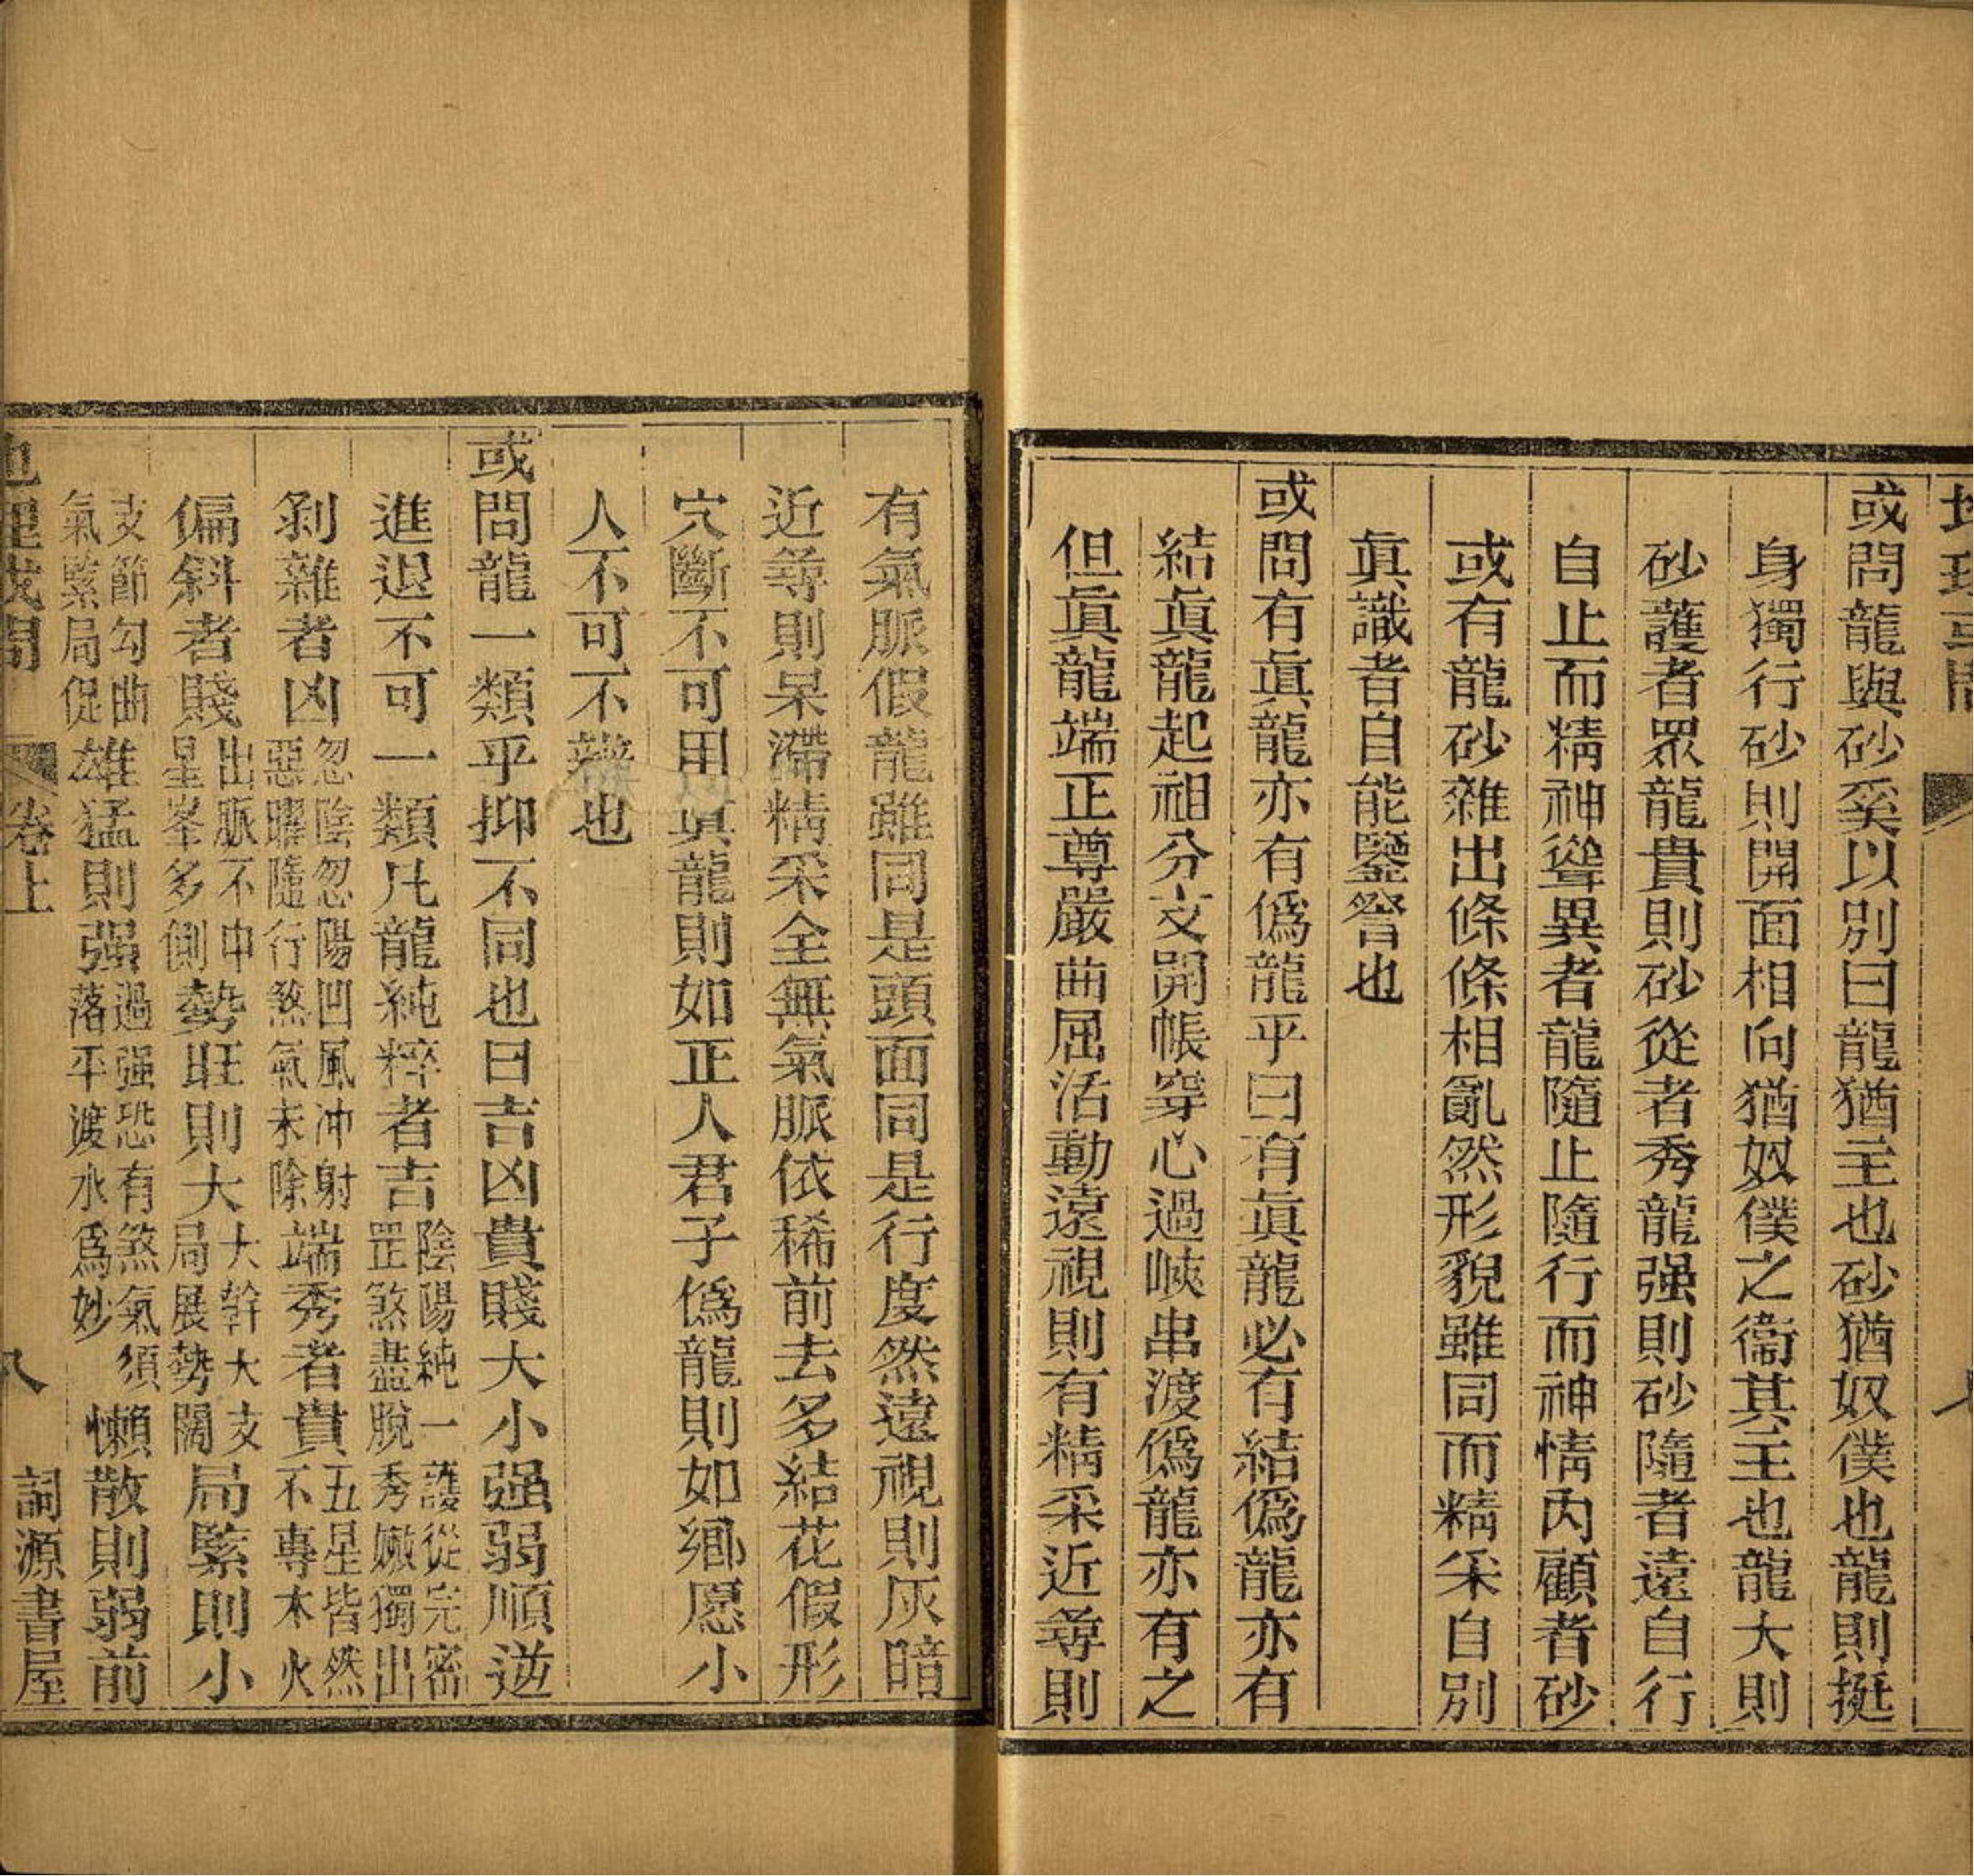 地理或問
或問龍與砂奚以別曰龍猶主也砂猶奴僕也龍則挺
身獨行砂則開面相向猶奴僕之衞其主也龍大則
砂護者眾龍貴則砂從者秀龍强則砂隨者遠自行
自止而精神聳異者龍隨止隨行而神情内顧者砂
或有龍砂雜出條條相亂然形貌雖同而精采自別
眞識者自能鑒詧也
或問有眞龍亦有僞龍乎曰有眞龍必有結僞龍亦有
結眞龍起祖分支開帳穿心過峽串渡僞龍亦有之
但眞龍端正尊嚴曲屈活動遠視則有精采近尋則
有氣脈假龍雖同是頭面同是行度然遠視則灰暗
近尋則呆滯精采全無氣脈依稀前去多結花假形
穴斷不可用眞龍則如正人君子僞龍則如鄉愿小
人不可不辯也
或問龍一類乎抑不同也曰吉凶貴賤大小强弱順逆
進退不可一類凡龍純粹者吉陰陽純一護從完密罡煞盡脫秀嫩獨出
剝雜者凶忽陰忽陽凹風冲射惡曜隨行煞氣未除端秀者貴五星皆然不專木火
偏斜者賤出脈不中星峯多側勢旺則大大幹大支局展勢闊局緊則小
支節勾曲氣緊局促雄猛則强過强恐有煞氣須落平渡水爲妙懶散則弱前
地理或問 卷上 八 詞源書屋